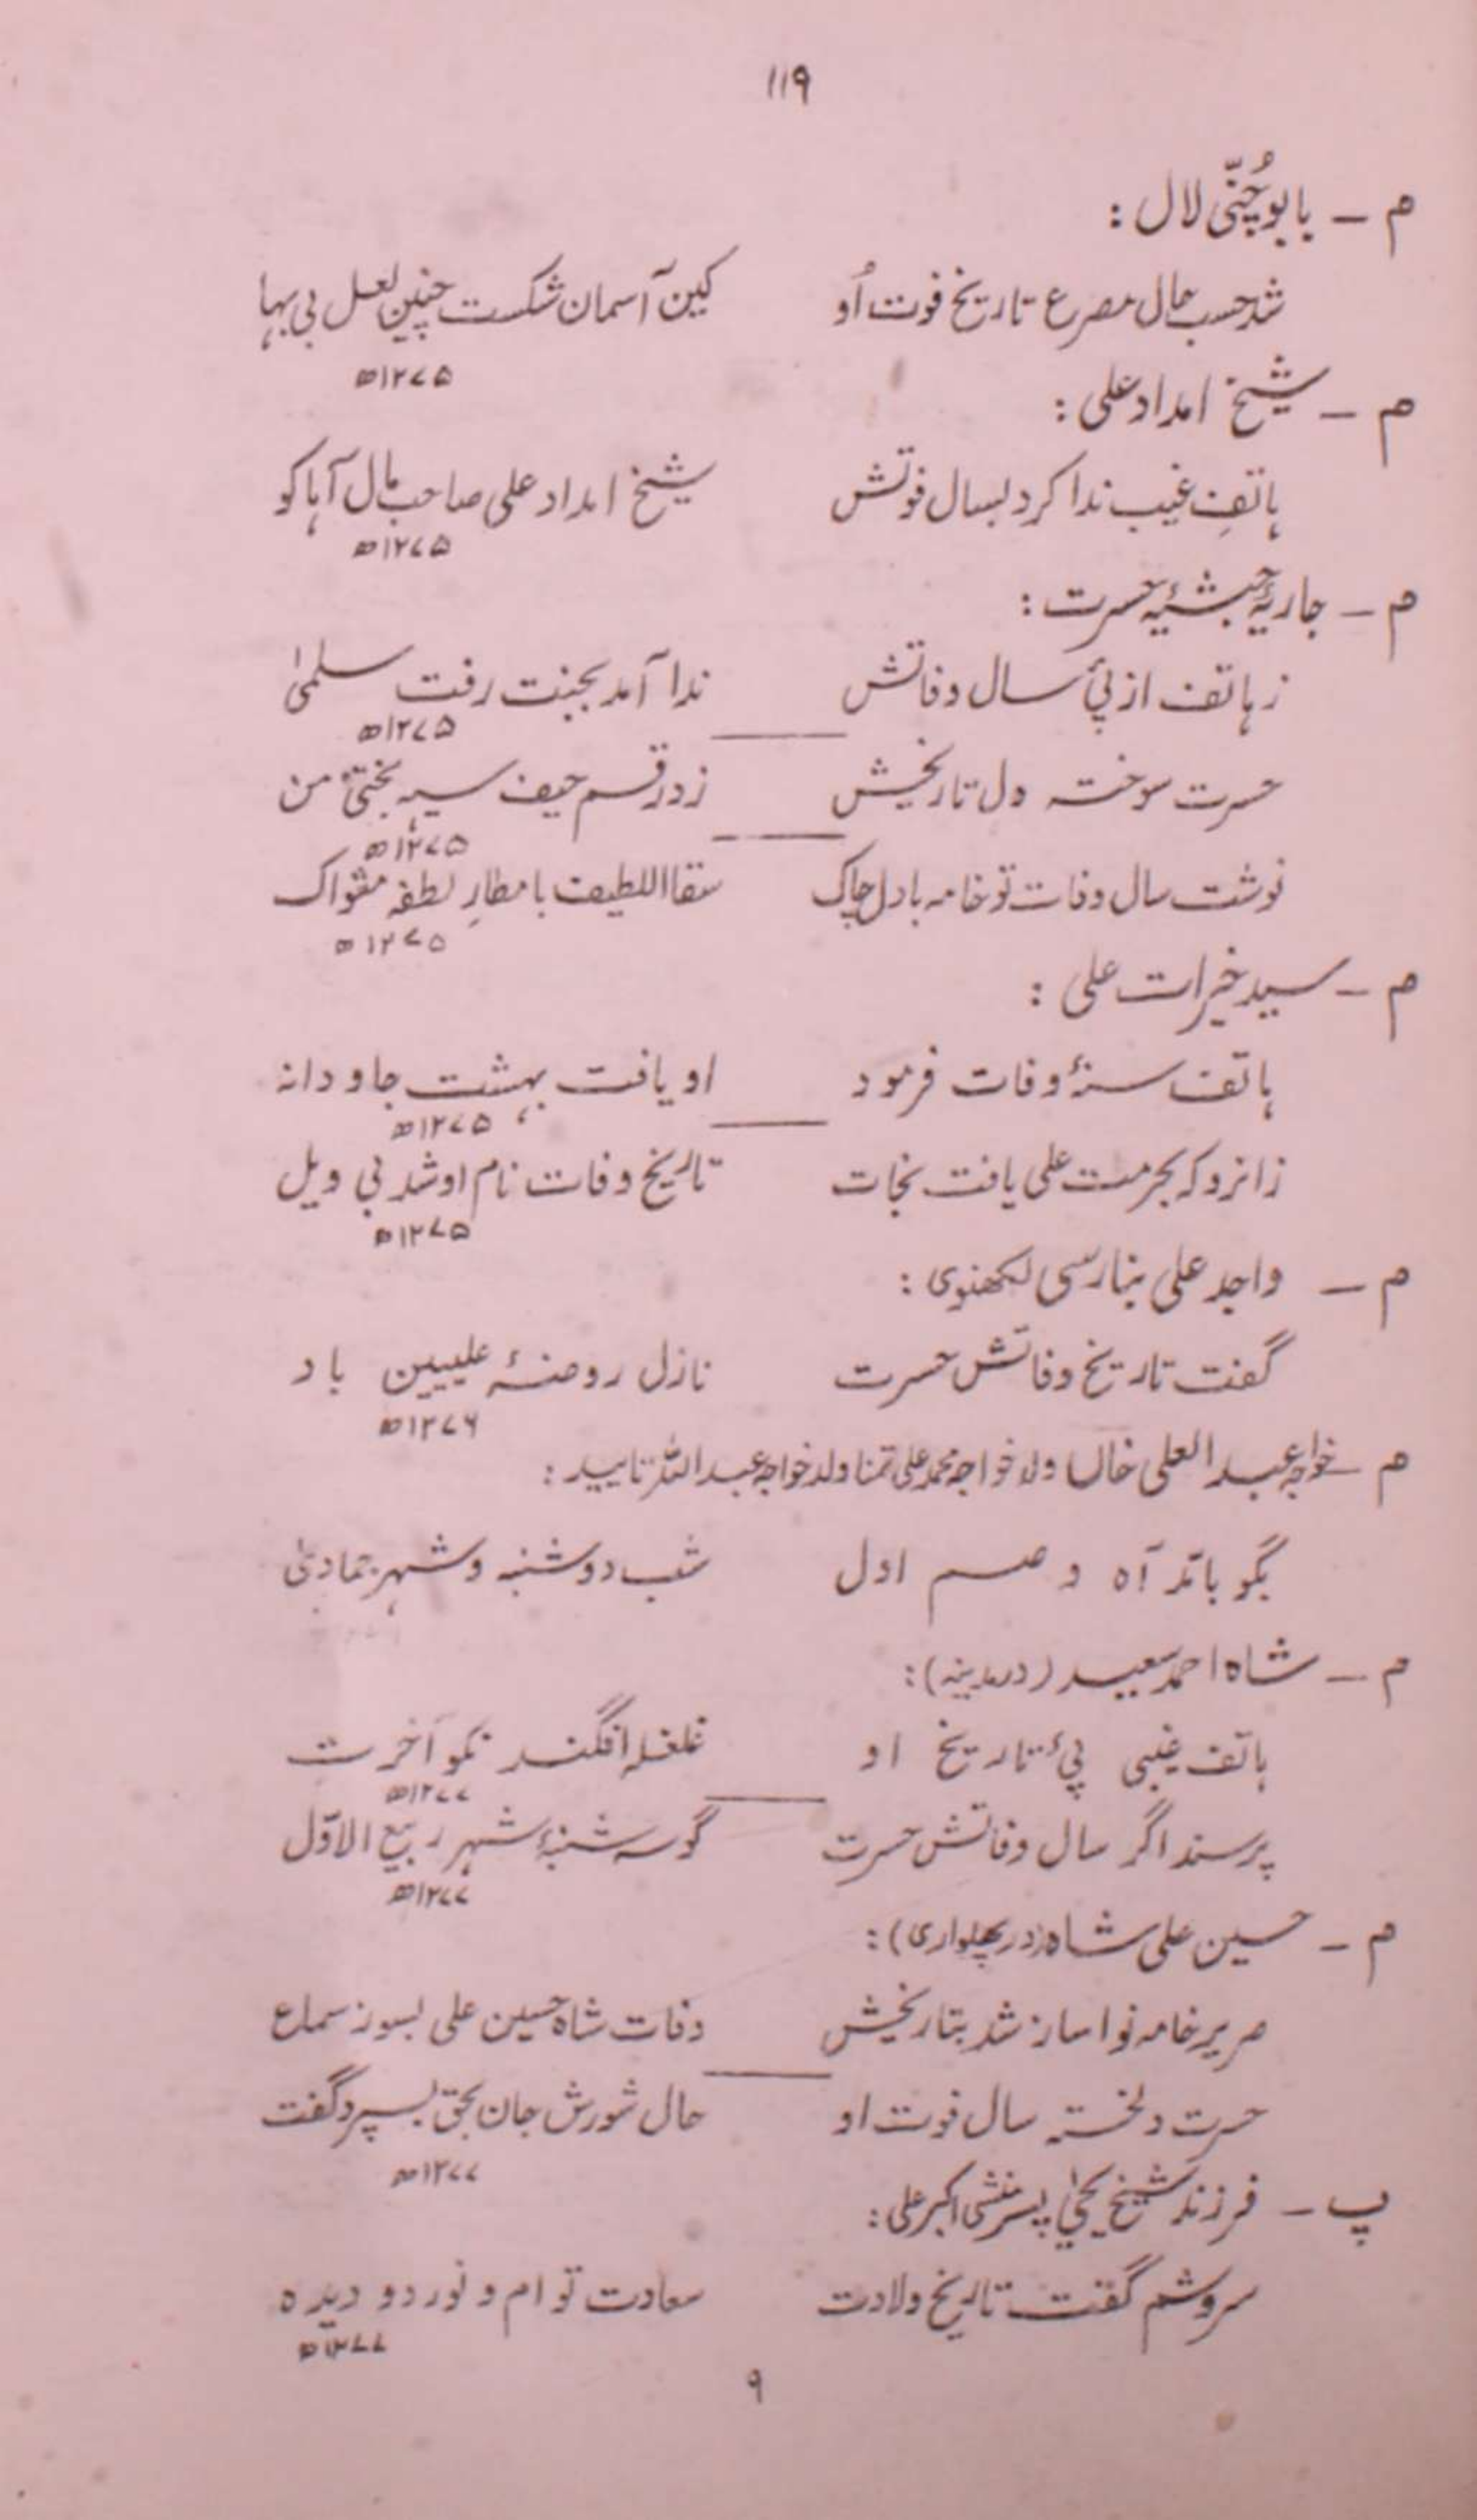 ۱۱۹
م ـ بابو چُنّی لال :
شد حسب حال مصرع تاریخ فوت اُو کین آسمان شکست چنین لعل بی بہا
۱۲۷۵ھ
م ـ شیخ امداد علی :
ہاتفِ غیب ندا کرد بسال فوتش شیخ امداد علی صاحب مال آہا کو
۱۲۷۵ھ
م ـ جاریۂ حبشیۂ حسرت :
ز ہاتف از پیٔ سال وفاتش ندا آمد بجنت رفت سلمیٰ
۱۲۷۵ھ
حسرت سوختہ دل تاریخش زد رقم حیف سیہ بختیٔ من
۱۲۷۵ھ
نوشت سال وفات تو خامہ با دل چاک سقا اللطیف بامطارِ لطفہ مثواک
۱۲۷۵ھ
م ـ سید خیرات علی :
ہاتف سنۂ وفات فرمود او یافت بہشت جاودانہ
۱۲۷۵ھ
زانرو کہ بحرمت علی یافت نجات تاریخ وفات نام او شد بی ویل
۱۲۷۵ھ
م ـ واجد علی بنارسی لکھنوی :
گفت تاریخ وفاتش حسرت نازل روضۂ علیین باد
۱۲۷۶ھ
م ـ خواجہ عبد العلی خاں ولد خواجہ محمد علی تمنا ولد خواجہ عبد اللہ تایید :
بگو با آہ و اول شب دوشنبہ و شہر جمادی
م ـ شاہ احمد سعید (در مدینہ) :
ہاتف غیبی پیٔ تاریخ او غلغلہ افگند نکو آخرت
۱۲۷۷ھ
پرسند اگر سال وفاتش حسرت گو سہ شنبۂ شہر ربیع الاوّل
۱۲۷۷ھ
م ـ حسین علی شاہ (در پھلواری) :
صریر خامہ نوا ساز شد بتاریخش وفات شاہ حسین علی بسوز سماع
حسرت دلختہ سال فوت او حال شورش جان بحق بسپرد گفت
۱۲۷۷ھ
پ ـ فرزند شیخ یحییٰ پسر منشی اکبر علی :
سروشم گفت تاریخ ولادت سعادت توام و نور دو دیدہ
۱۲۷۷ھ
۹